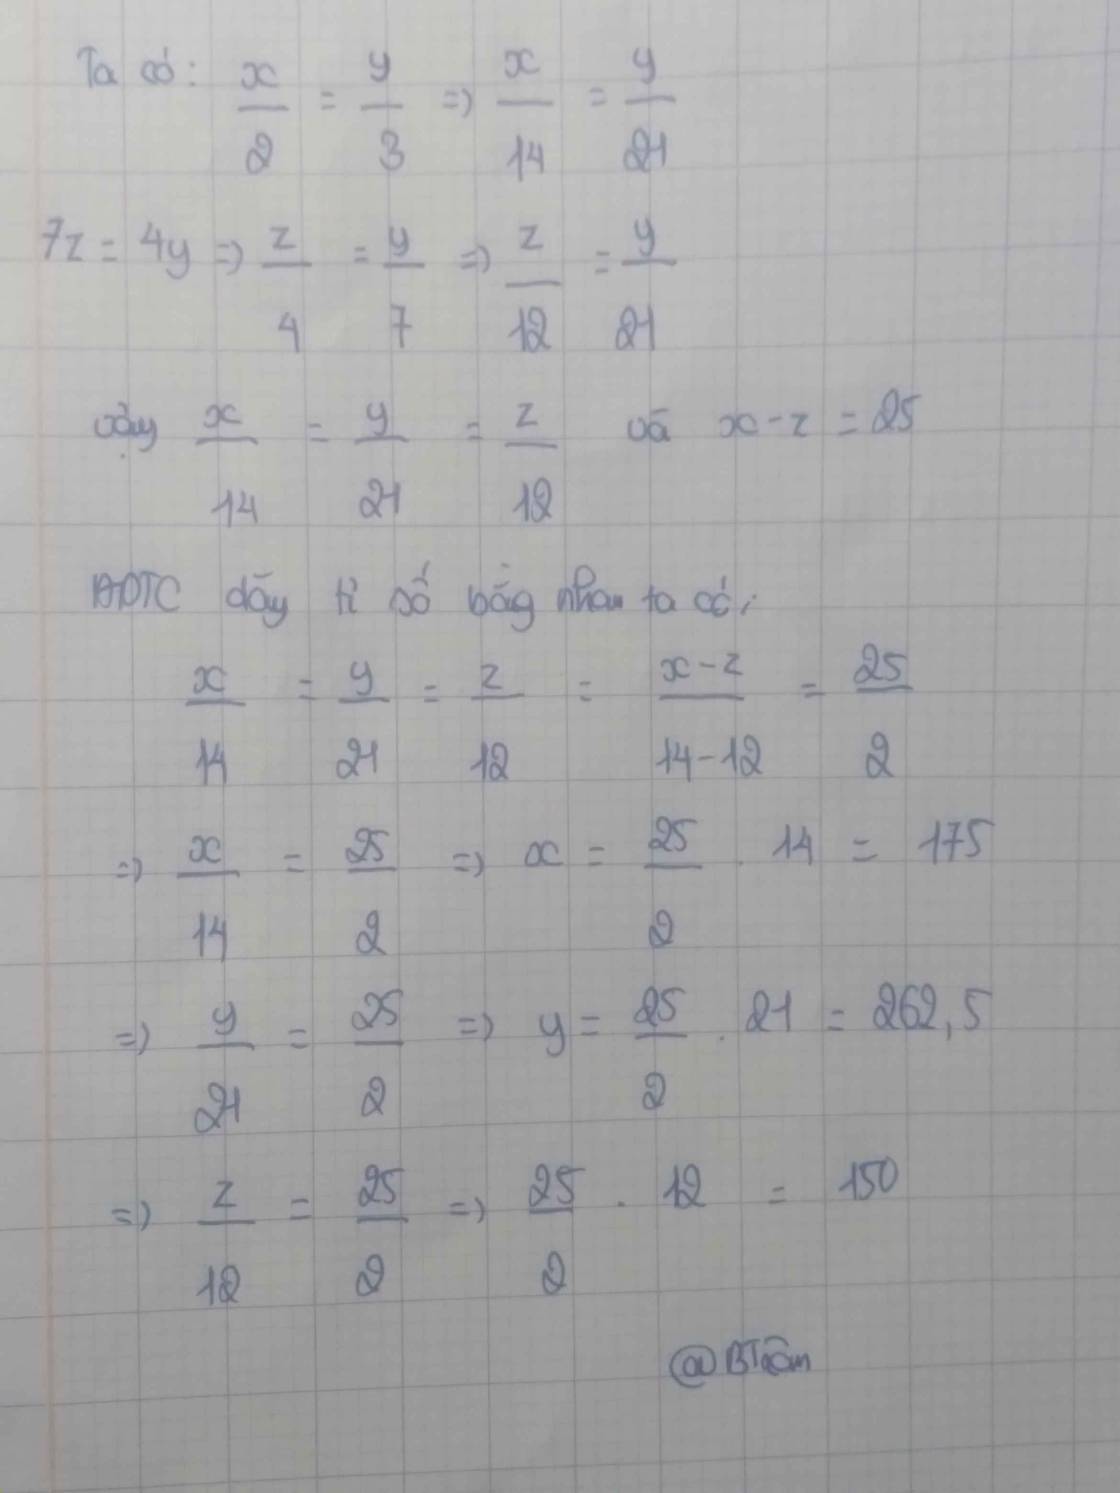 Ta có: x/2 = y/3 => x/14 = y/21
7z = 4y => z/4 = y/7 => z/12 = y/21
vậy x/14 = y/21 = z/12 và x-z = 25
ADTC dãy tỉ số bằg nhau ta có:
x/14 = y/21 = z/12 = x-z/14-12 = 25/2
=> x/14 = 25/2 => x = 25/2 . 14 = 175
=> y/21 = 25/2 => y = 25/2 . 21 = 262,5
=> z/12 = 25/2 => 25/2 . 12 = 150